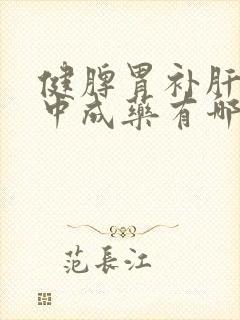 健脾胃补肝
中成藥有哪
范長江